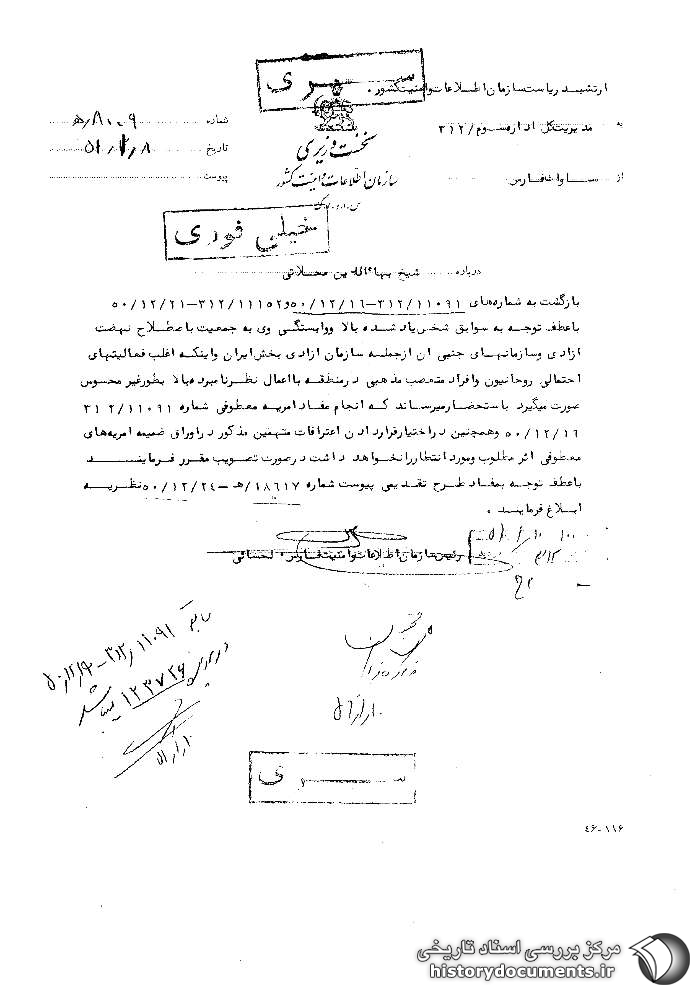 سری
ارتشبد ریاست سازمان اطلاعات وامنیت کشور.
به مدیریت کل اداره سوم/۳۱۲
از ساواک فارس
نخست وزیری
سازمان اطلاعات و امنیت کشور
س.ا.و.ا.ک
شماره ۸۰۰۹/ه
تاریخ
پیوست
خیلی فوری
درباره شیخ بهاءالدین محلاتی
بازگشت به شماره‌های ۳۱۲/۱۱۰۹۱-۵۰/۱۲/۱۶و۳۱۲/۱۱۱۵۲-۵۰/۱۲/۲۱
باعطف توجه به سوابق شخص یاد شده بالا ووابستگی وی به جمعیت باصطلاح نهضت
ازادی وسازمانهای جنبی ان ازجمله سازمان ازادی بخش ایران واینکه اغلب فعالیتهای
احتمالی روحانیون وافراد متعصب مذهبی درمنطقه بااعمال نظرنامبرده بالا بطورغیر محسوس
صورت میگیرد باستحضارمیرساند که انجام مفاد امریه معطوفی شماره ۳۱۲/۱۱۰۹۱
۵۰/۱۲/۱۶ وهمچنین دراختیارقراردادن اعترافات متهمین مذکور دراوراق ضمیمه امریه‌های
معطوفی اثر مطلوب ومورد انتظاررانخواهد داشت درصورت تصویب مقرر فرمایند
باعطف توجه بمفاد طرح تقدیمی پیوست شماره ۱۸۶۱۷/ه-۵۰/۱۲/۲۴نظریه
ابلاغ فرمایند.
رئیس سازمان اطلاعات وامنیت فارس.
۳۱۲/۱۱۰۹۱
۱۲۳۷۲۶ میباشد
سری
۴۶-۱۱۶
مرکز بررسی اسناد تاریخی
historydocuments.ir